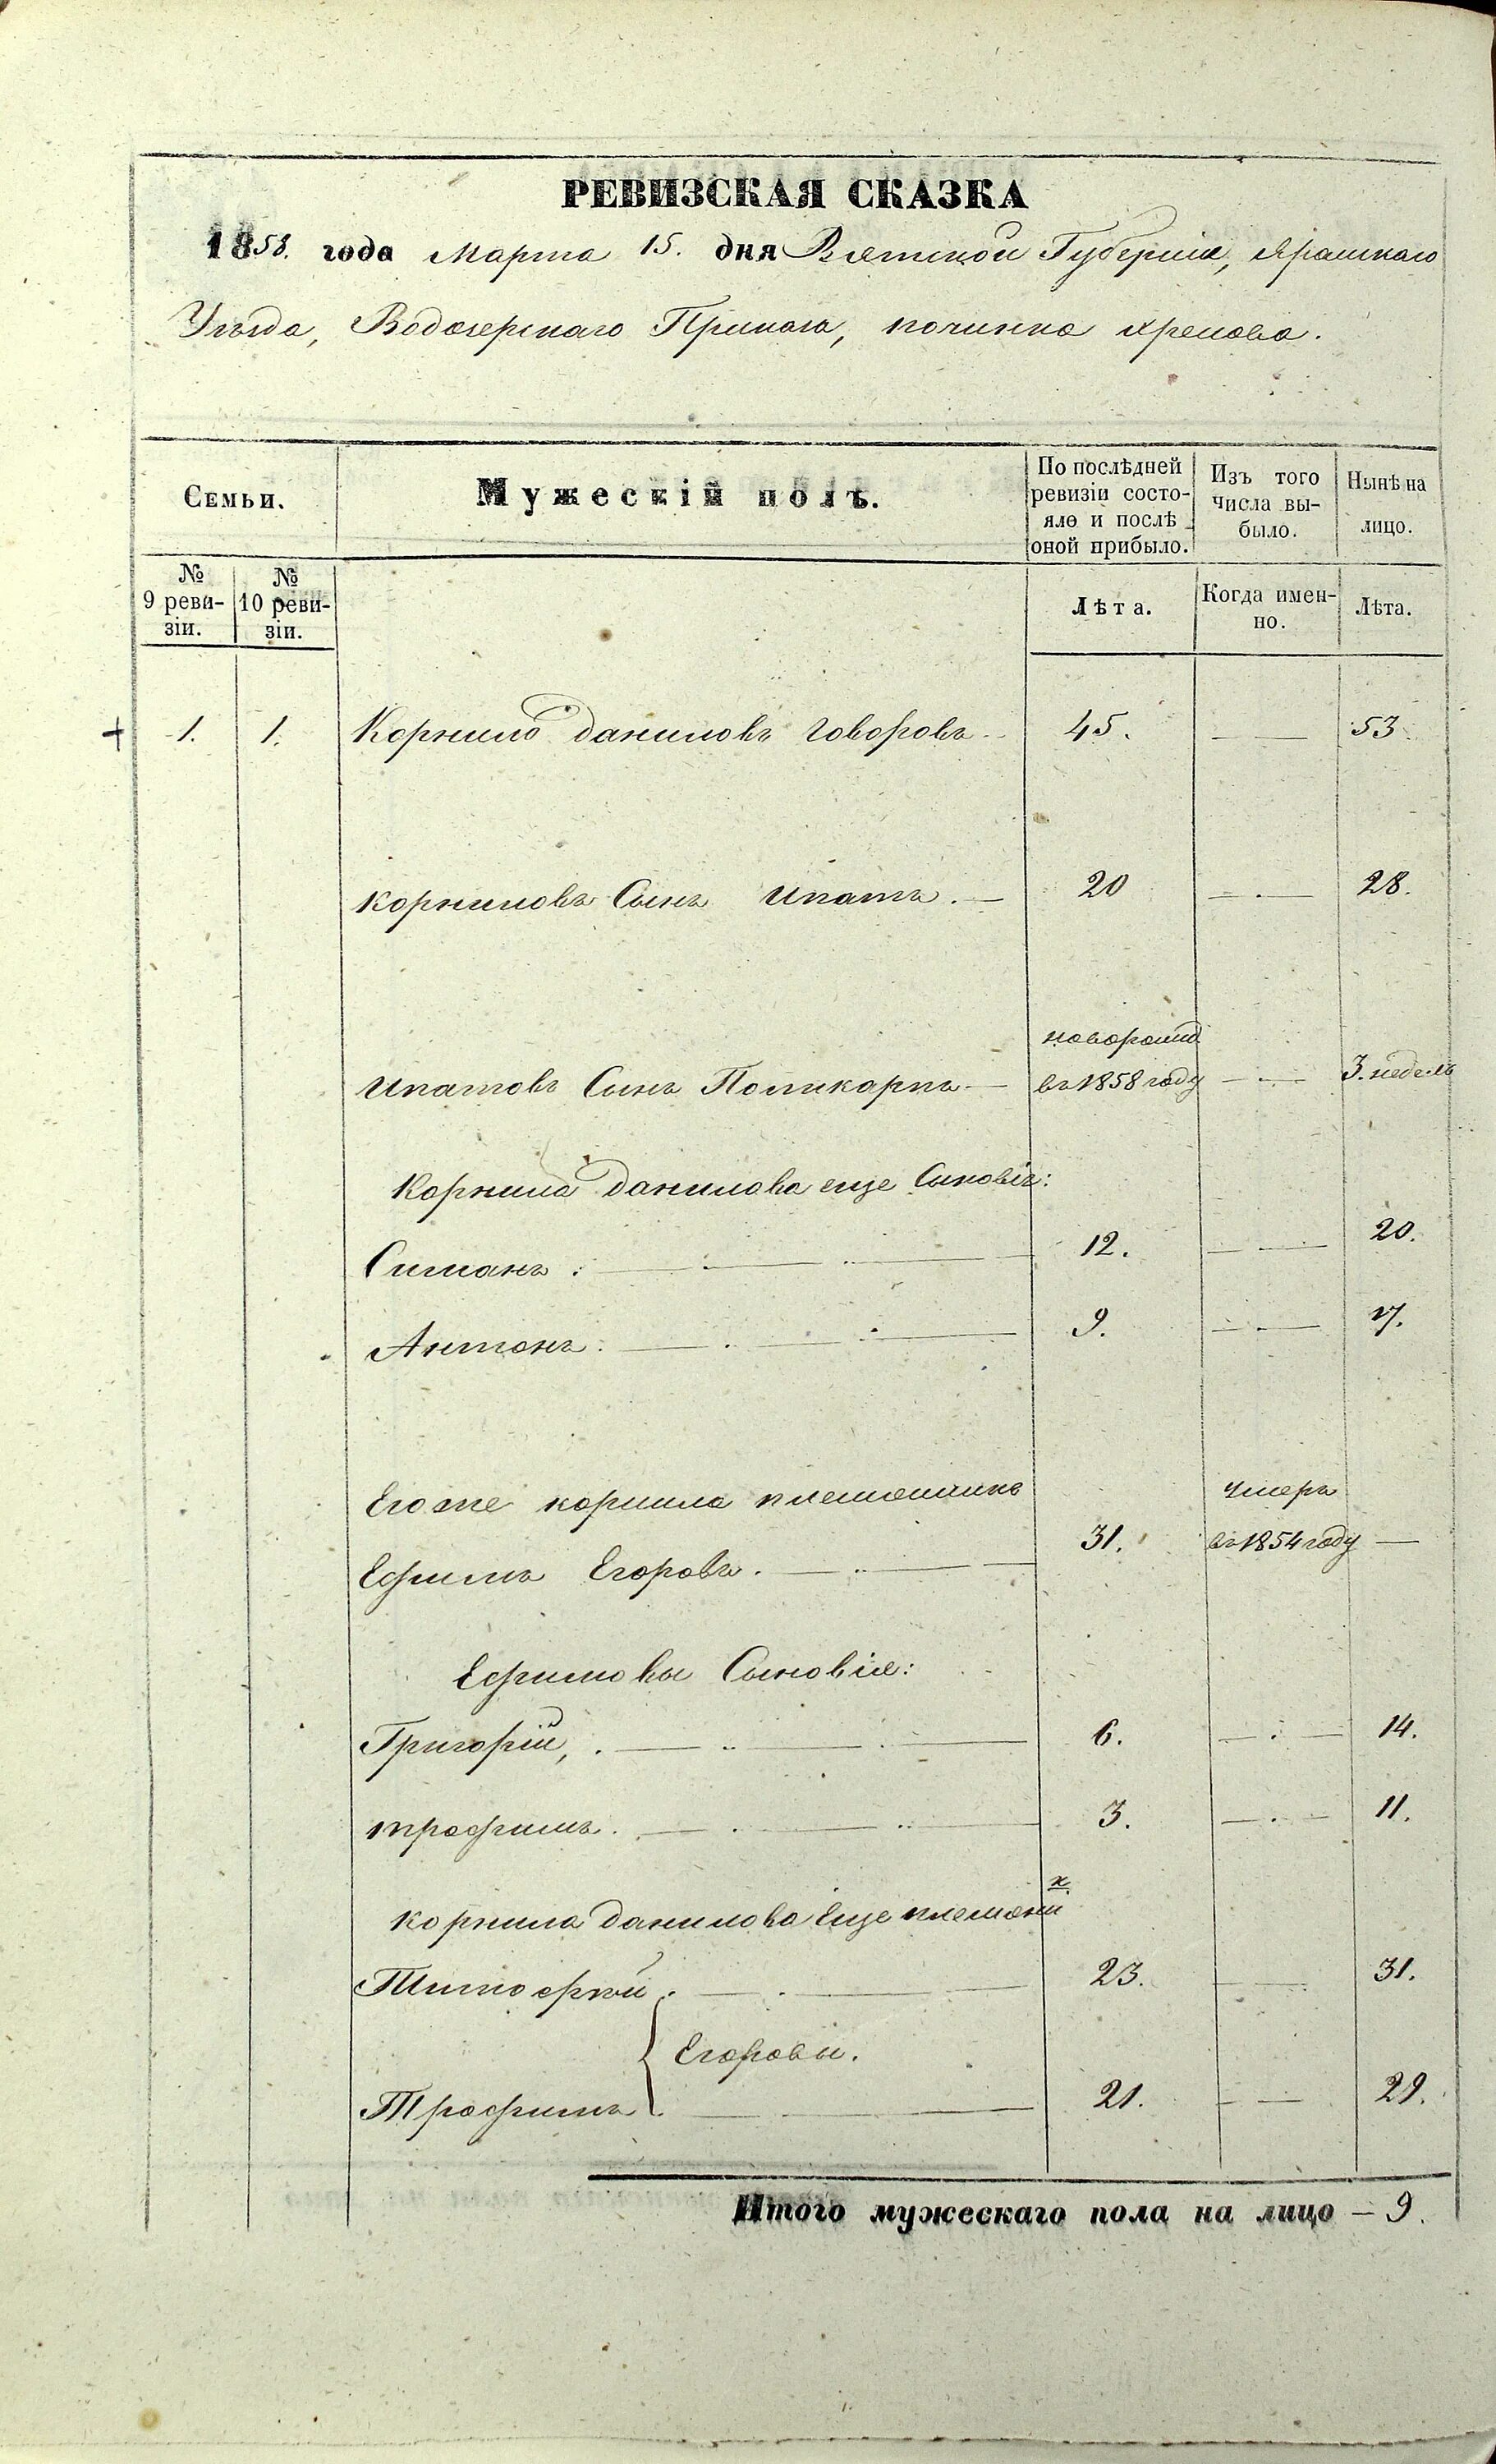 РЕВИЗСКАЯ СКАЗКА
1858. года Марта 15. дня Вятской Губерніи, Яранскаго
Уѣзда, Водозерскаго Приказа, починка Хренова.
Семьи.
Мужескій полъ.
По послѣдней
ревизіи состо-
яло и послѣ
оной прибыло.
Изъ того
числа вы-
было.
Нынѣ на
лицо.
№
9 реви-
зіи.
№
10 реви-
зіи.
Лѣта.
Когда имен-
но.
Лѣта.
1. 1. Корнило Даниловъ Говоровъ 45. 53
Корниловъ Сынъ Ипатъ. 20 28.
новорожд
Ипатовъ Сынъ Поликарпъ въ 1858 году 3. недель
Корнила Данилова еще Сыновія:
Симанъ: 12. 20.
Антонъ: 9. 17.
Его же корнила племянникъ умеръ
Ефимъ Егоровъ. 31. въ 1854 году
Ефимовы Сыновія:
Григорій, 6. 14.
трофимъ. 3. 11.
корнила Данилова еще племянни к
Тимофей 23. 31.
Егоровы.
Трофимъ 21. 29.
Итого мужескаго пола на лицо – 9.